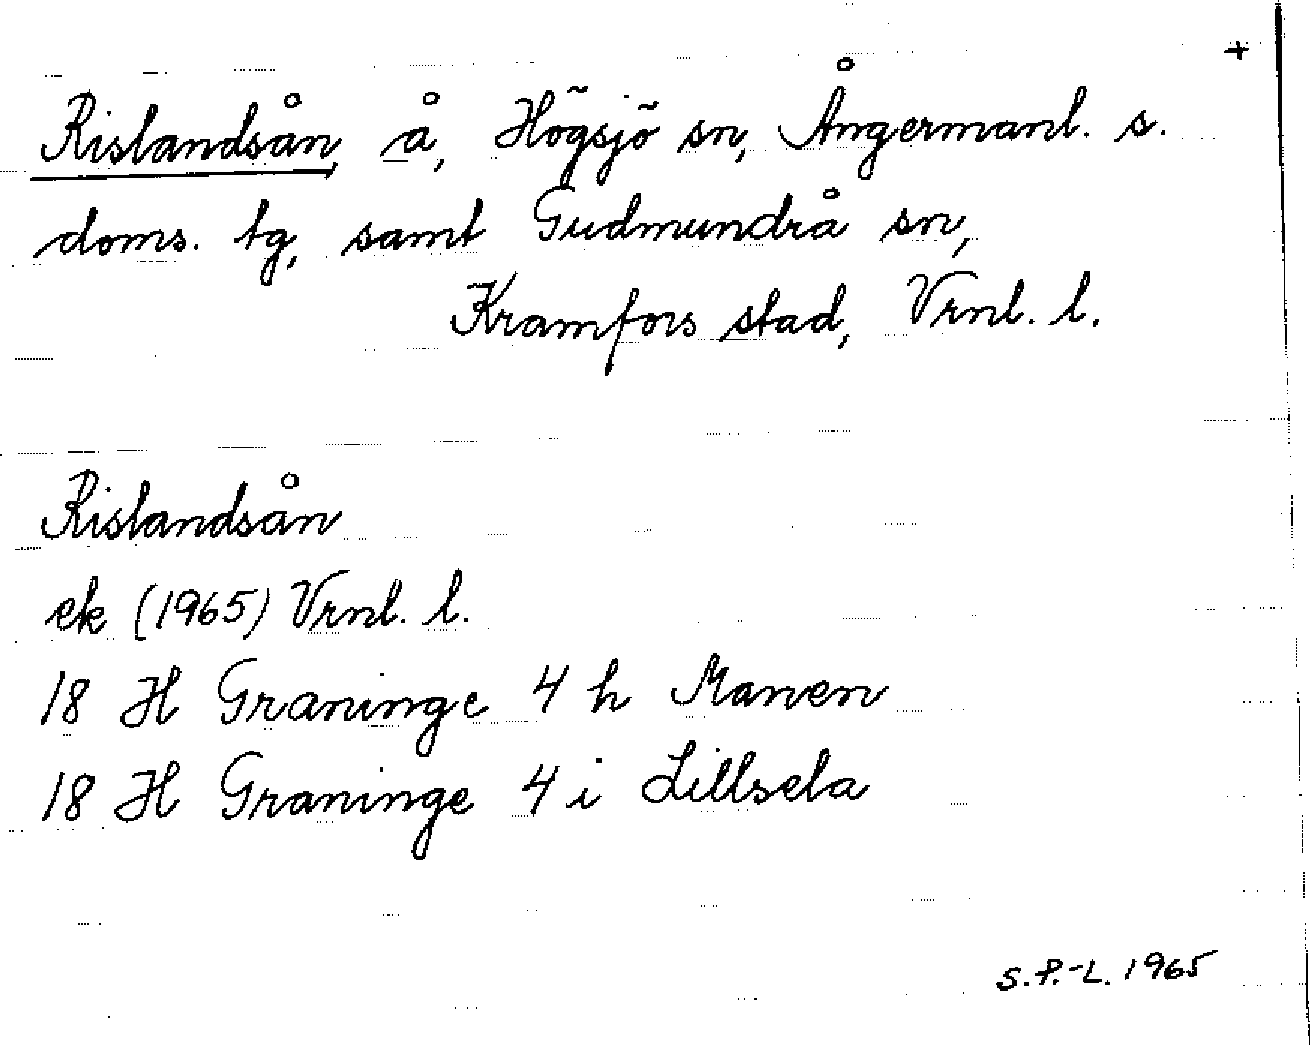 +
Rislandsån, å, Högsjö sn, Ångermanl. s.
doms. tg, samt Gudmundrå sn,
Kramfors stad, Vrnl. l.
Rislandsån
ek (1965) Vrnl. l.
18 H Graninge 4 h Manen
18 H Graninge 4 i Lillsela
S.P.-L. 1965